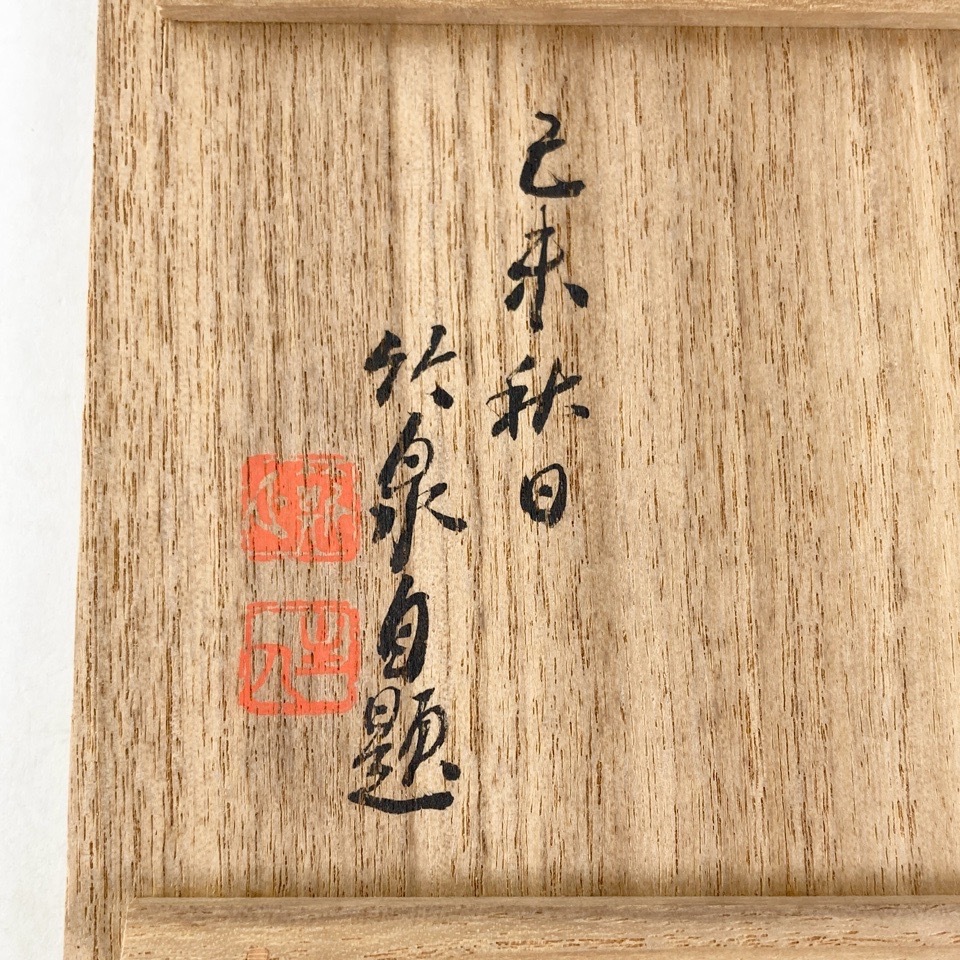 己未秋日
竹泉自題